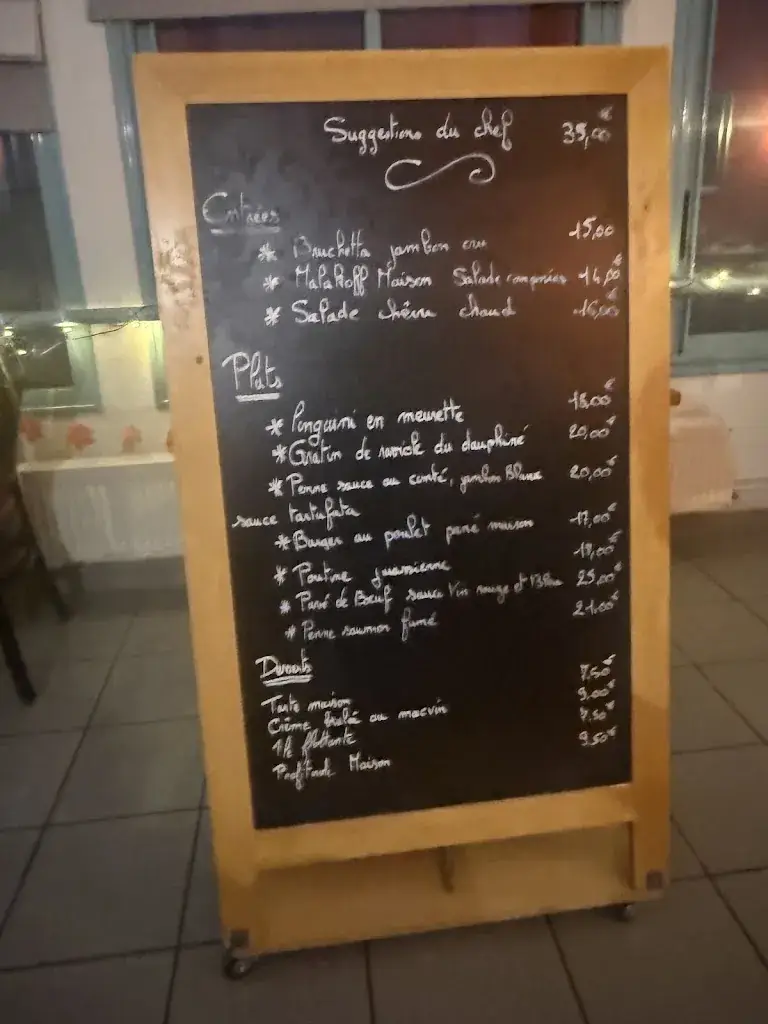 Suggestions du chef 35,00€
Entrées
* Bruchetta jambon cru 15,00
* Malakoff Maison Salade composées 14,00€
* Salade chèvre chaud 16,00€
Plats
* linguini en meurette 18,00€
* Gratin de raviole du dauphiné 20,00€
* Penne sauce au comté, jambon Blanc 20,00€
sauce tartufata
* Burger au poulet pané maison 17,00€
* Poutine jurassienne 19,00€
* Pavé de Bœuf sauce Vin rouge et Bleu 25,00€
* Penne saumon fumé 21,00€
Desserts
Tarte maison 7,50€
Crème brulé au macvin 9,00€
Ile flottante 7,50€
Profiterole Maison 9,50€